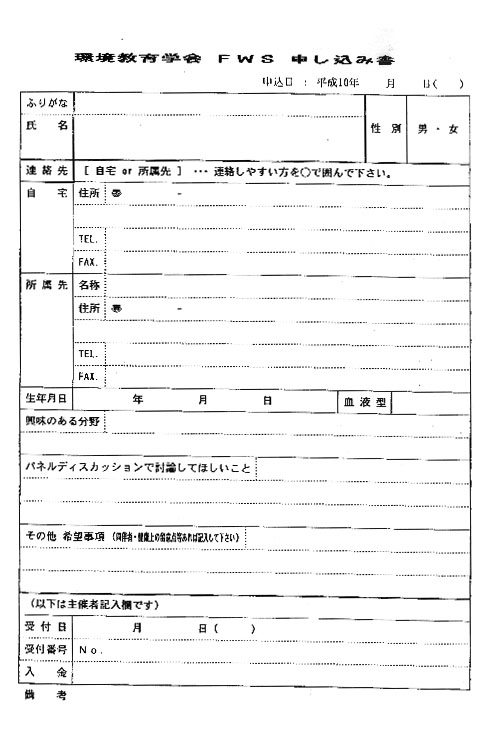 環境教育学会 FWS 申し込み書
申込日 : 平成10年 月 日( )
ふりがな
氏 名
性 別 男・女
連絡先 [ 自宅 or 所属先 ] … 連絡しやすい方を○で囲んで下さい。
自 宅 住所 〠 -
TEL.
FAX.
所属先 名称
住所 〠 -
TEL.
FAX.
生年月日 年 月 日 血液型
興味のある分野
パネルディスカッションで討論してほしいこと
その他 希望事項 (同伴者・健康上の留意点等あれば記入して下さい)
(以下は主催者記入欄です)
受付日 月 日( )
受付番号 No.
入 金
備 考